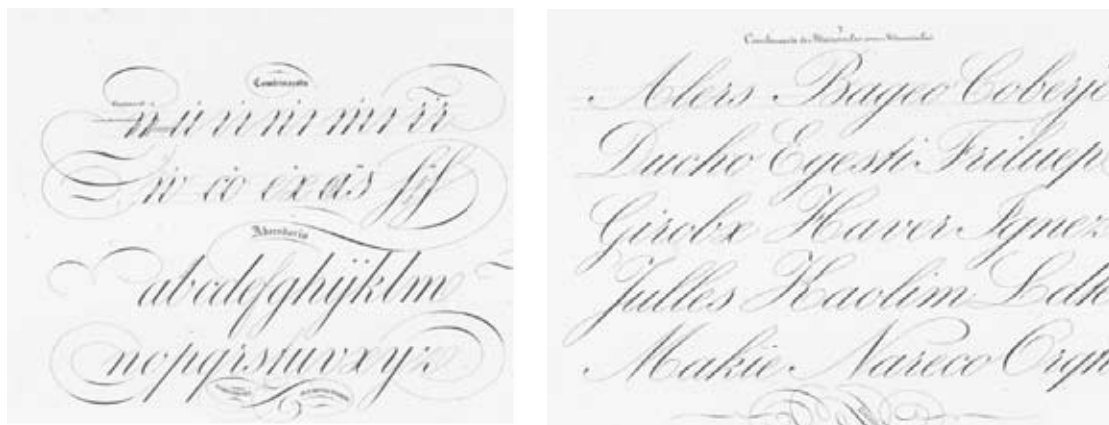 Combinación
n ii ii ni mi ïï
iv cò ex às ſſſ
Abecedario
abcdefghijklm
nopqrstuvxyz
Combinación de Mayúsculas con Minúsculas
Alers Bageo Coberje
Ducho Egesti Friluep
Girobx Haver Ignez
Julles Kaolim Ldh
Makie Nareco Orqu